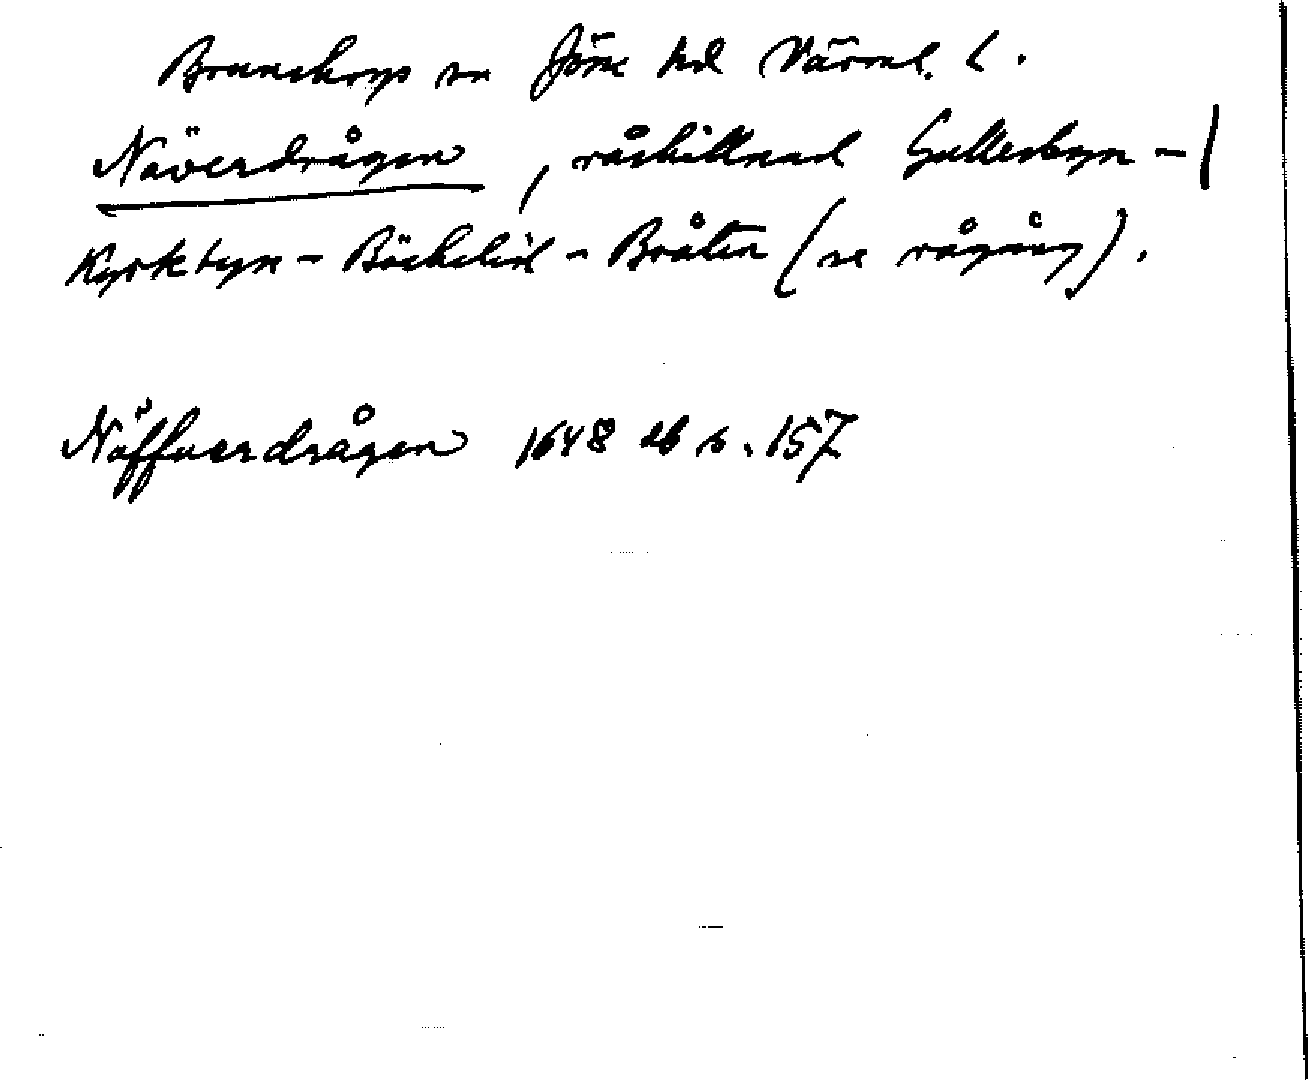 Brunskogs sn Jösse hd Värml. l.
Näverdrågen, råskillnad Gullersbyn -
Kyrkbyn - Bäckelid - Bråten (se rågång).
Näffuerdrågen 1648 db s. 157